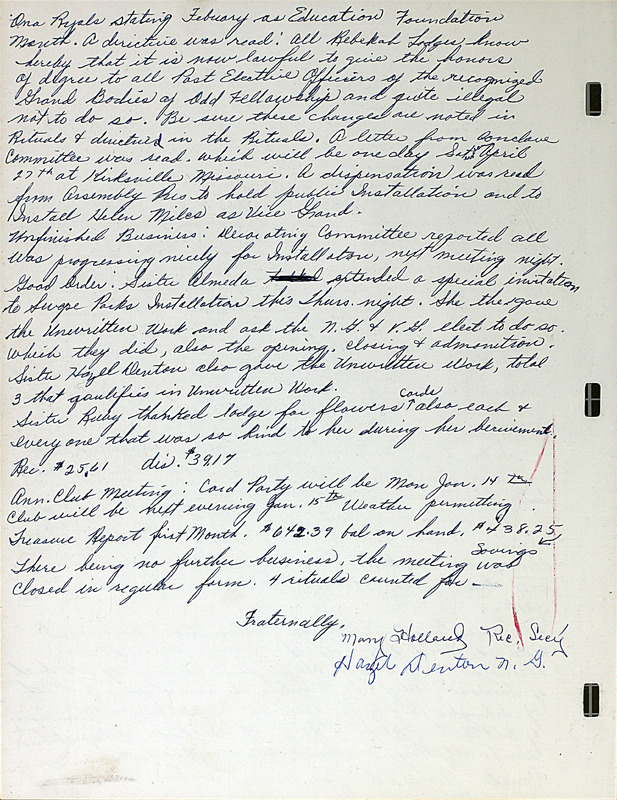 Ona Ryals stating Febuary as Education Foundation
Month. A dirictive was read: all Rebekah Lodges know
hereby that it is now lawful to give the honors
of degree to all Past Elective Officers of the recognized
Grand Bodies of Odd Fellowship and quite illegal
not to do so. Be sure these changes are noted in
Rituals & directed in the Rituals. A letter from Conclave
Committee was read. which will be one day Sat. April
27th at Kirksville Missouri. A dispensation was read
from Assembly Pres to hold public Installation and to
Install Helen Miles as Vice Grand.
Unfinished Business: Decorating Committee reported all
was progressing nicely for Installaton, next meeting night.
Good Order: Sister Almeda extended a special invitation
to Swope Parks Installation this Thurs. night. She then gave
the Unwritten Work and ask the N.G. & V.G. elect to do so.
which they did, also the opening, closing & admonition.
Sister Hazel Denton also gave the Unwritten Work, total
3 that qaulifies in Unwritten Work.
Sister Ruby thanked lodge for flowers cards also each &
everyone that was so kind to her during her berivement.
Rec. $25.61 dis. $39.17
Ann. Club Meeting: Card Party will be Mon Jan. 14th
Club will be kept evening Jan. 15th Weather permitting.
Treasure Report first Month. $642.39 bal on hand. $438.25
Savings
There being no further business, the meeting was
closed in regular form. 4 rituals counted for —
Fraternally,
Mary Holland Rec. Secy
Hazel Denton N. G.